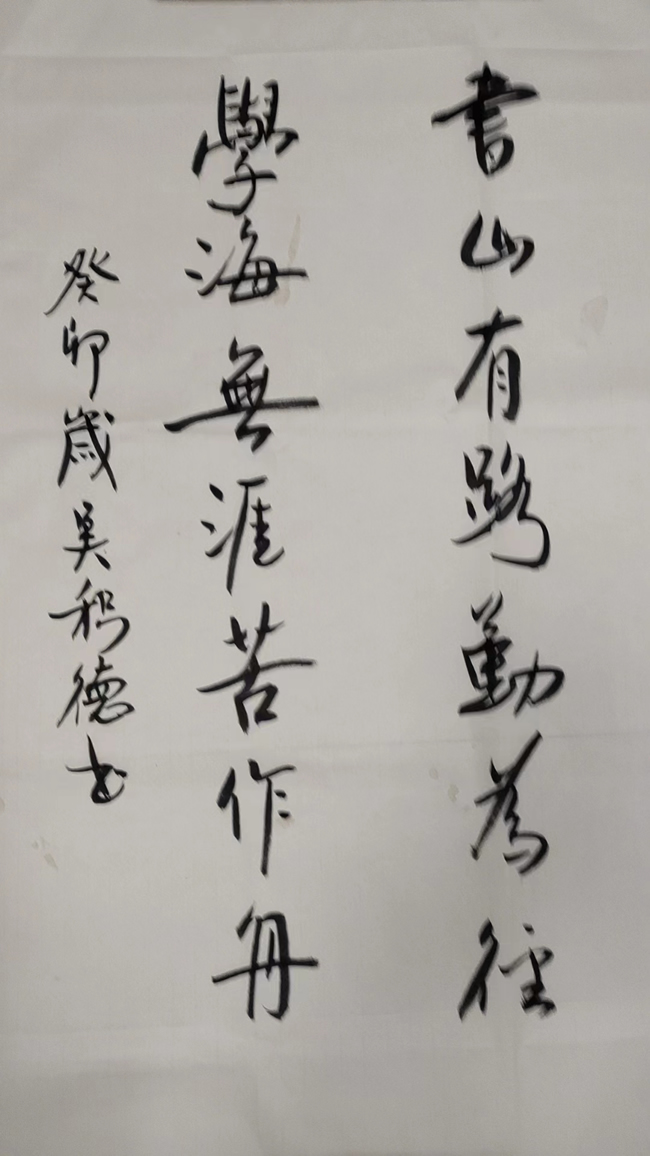 書山有路勤為徑
學海無涯苦作舟
癸卯歲吳积德书